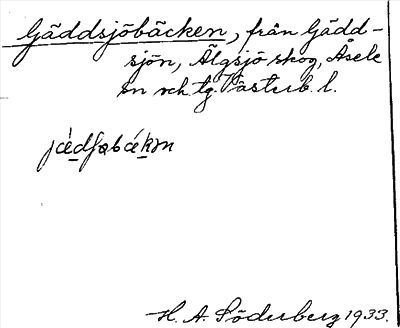 Gäddsjöbäcken, från Gädd-
sjön, Älgsjö skog, Åsele
sn och tg. Västerb. l.
H. A. Söderberg 1933.